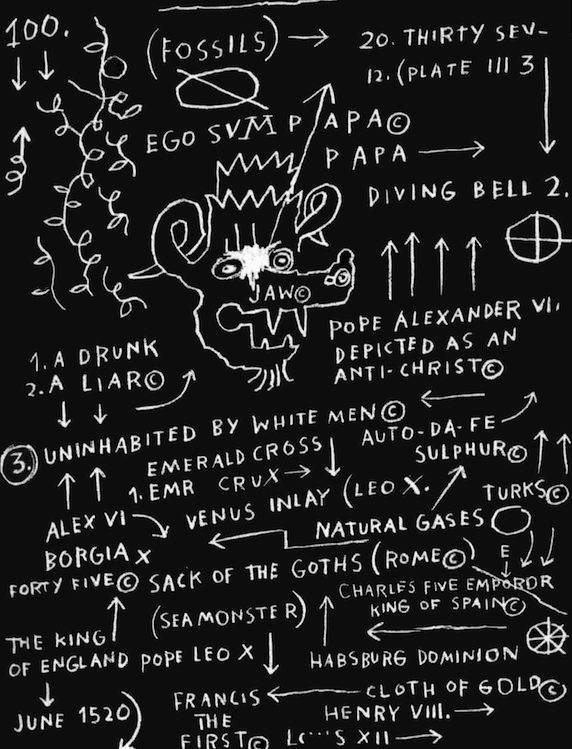 100.
(FOSSILS) → 20. THIRTY SEV-
12. (PLATE III 3
EGO SVM PAPA©
PAPA →
DIVING BELL 2.
JAW©
POPE ALEXANDER VI.
DEPICTED AS AN
ANTI-CHRIST©
1. A DRUNK
2. A LIAR©
3. UNINHABITED BY WHITE MEN©
AUTO-DA-FE
EMERALD CROSS
SULPHUR©
1. EMR CRUX →
TURKS©
VENUS INLAY (LEO X.
ALEX VI
NATURAL GASES
BORGIA X
E
FORTY FIVE© SACK OF THE GOTHS (ROME©)
CHARLES FIVE EMPOROR
KING OF SPAIN©
(SEA MONSTER)
THE KING
OF ENGLAND POPE LEO X
HABSBURG DOMINION
JUNE 1520
FRANCIS ← CLOTH OF GOLD©
THE HENRY VIII. →
FIRST© XII →